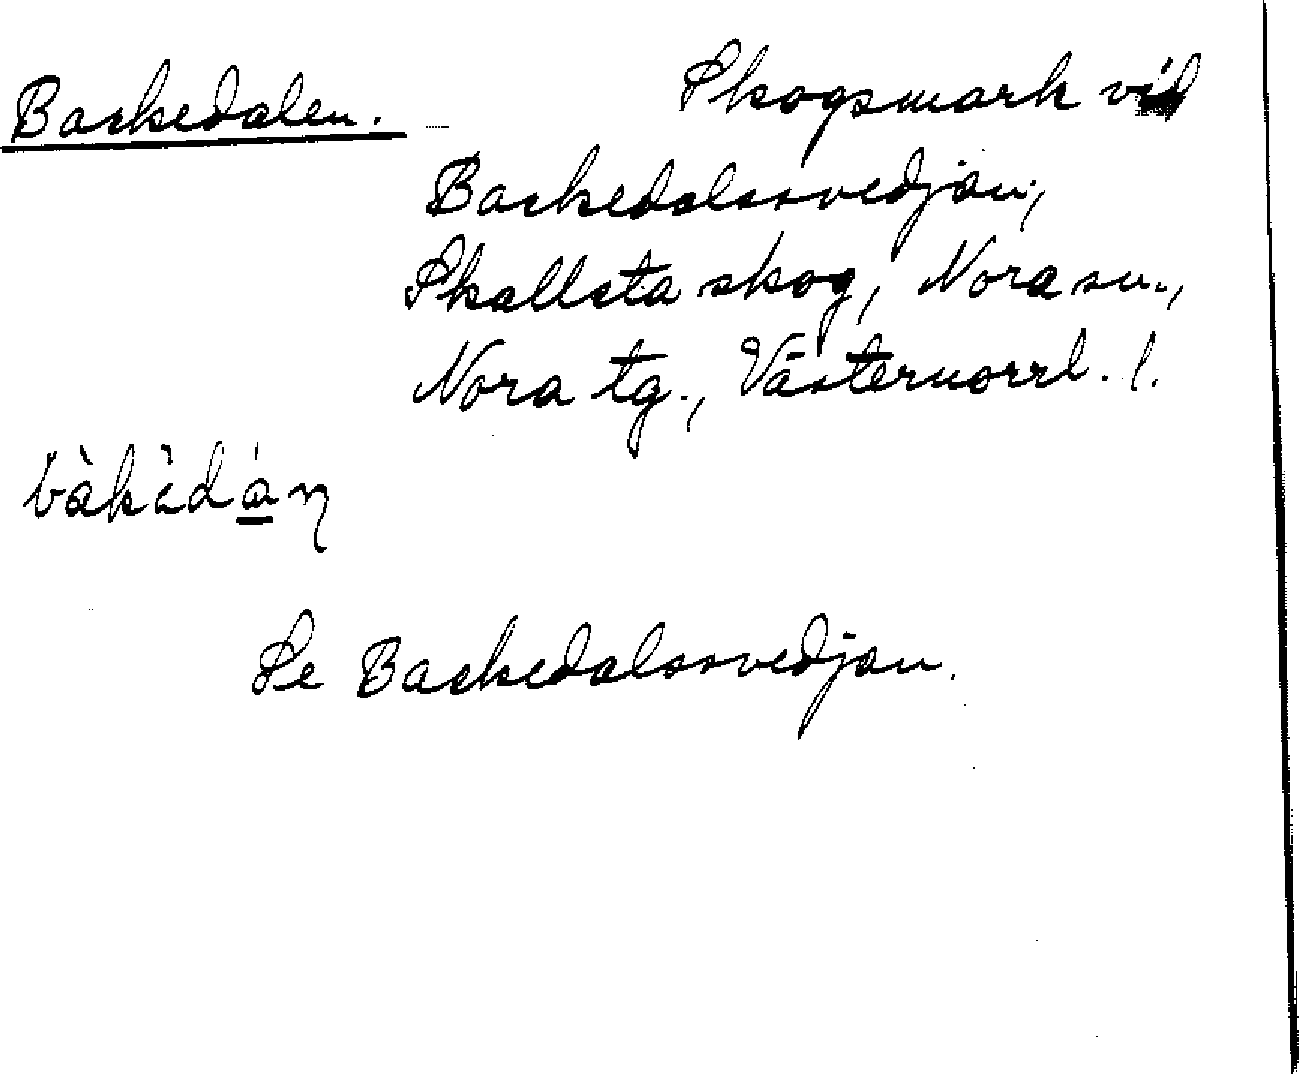 Backedalen. Skogsmark vid
Backedalssvedjan,
Skallsta skog, Nora sn.,
Nora tg., Västernorrl. l.
Se Backedalssvedjan.